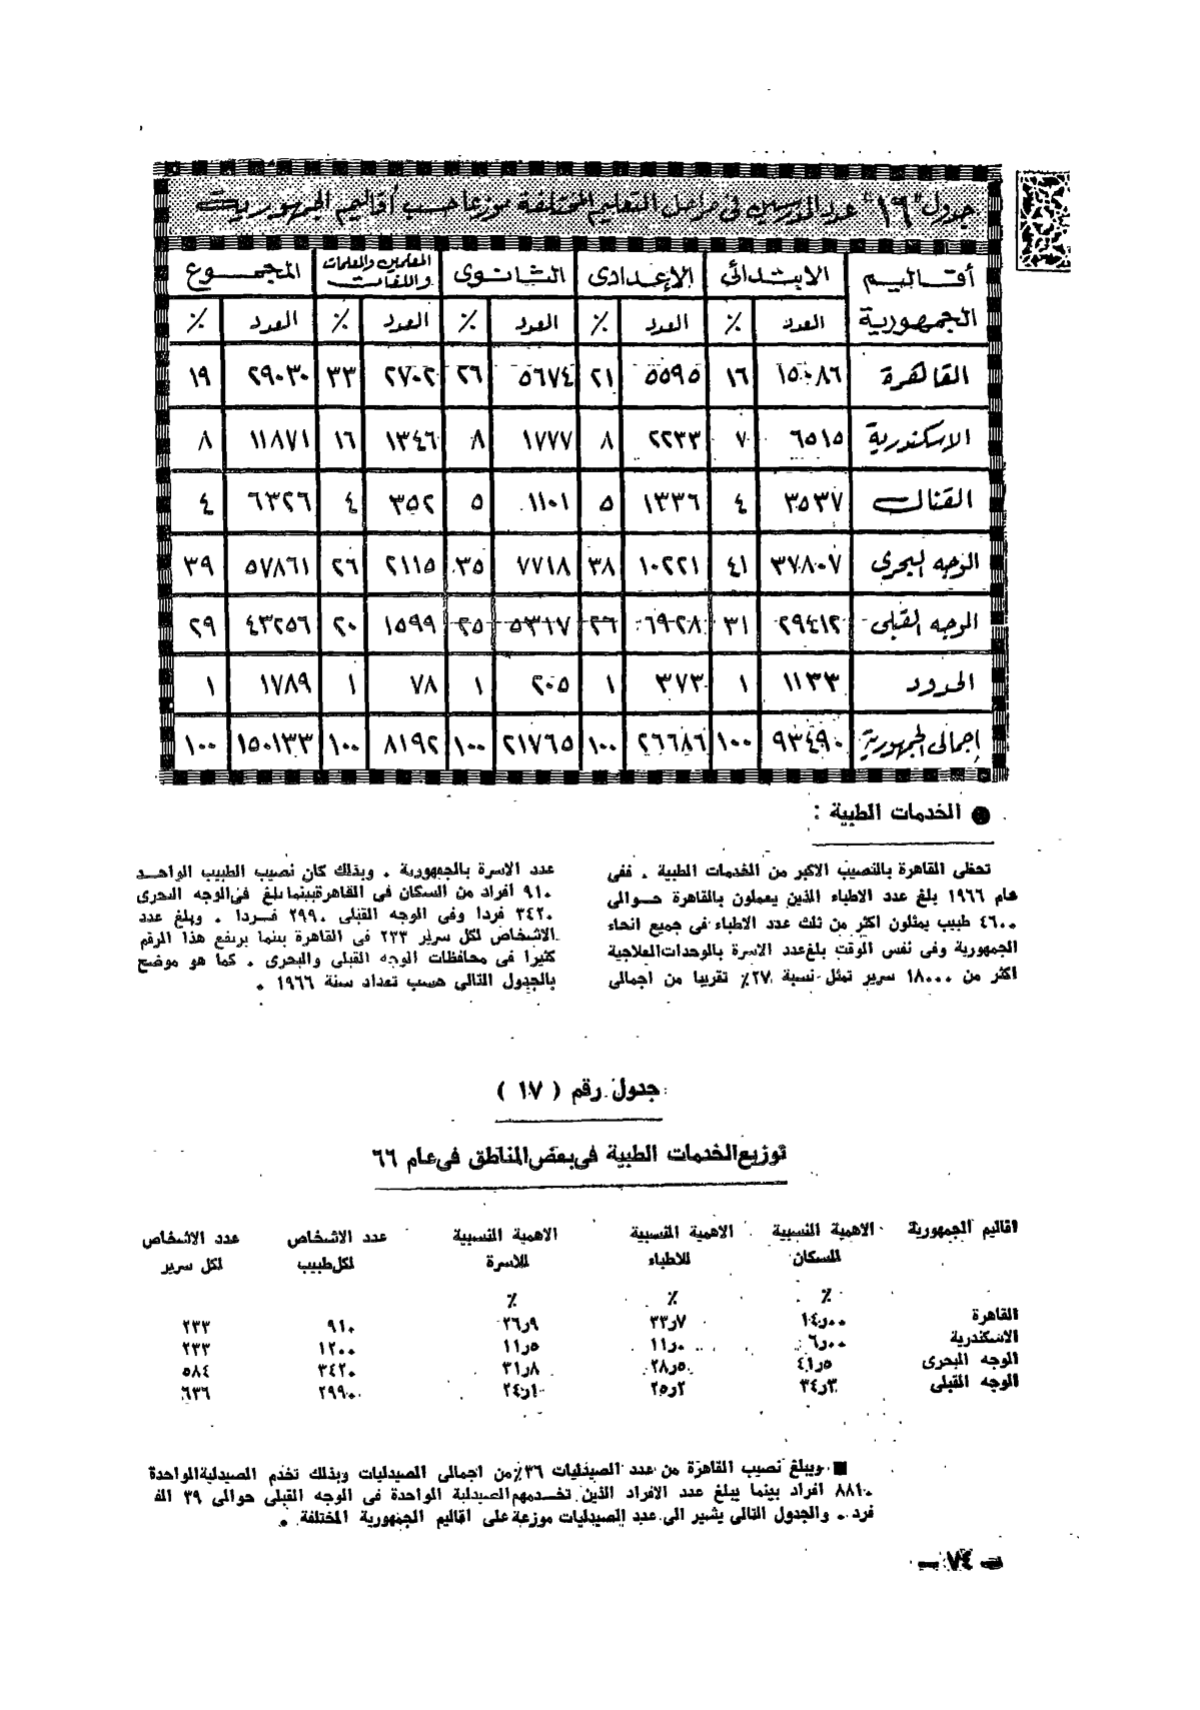 جدول "١٦" عدد المدرسين فى مراحل التعليم المختلفة موزعا حسب أقاليم الجمهورية
أقاليم الجمهورية | الابتدائى | الإعدادى | الثانوى | المعلمين والمعلمات واللغات | المجموع
العدد | ٪ | العدد | ٪ | العدد | ٪ | العدد | ٪ | العدد | ٪
القاهرة | ١٥٠٨٦ | ١٦ | ٥٥٩٥ | ٢١ | ٥٦٧٤ | ٢٦ | ٢٧٠٢ | ٣٣ | ٢٩٠٣٠ | ١٩
الاسكندرية | ٦٥١٥ | ٧ | ٢٢٣٣ | ٨ | ١٧٧٧ | ٨ | ١٣٤٦ | ١٦ | ١١٨٧١ | ٨
القنال | ٣٥٣٧ | ٤ | ١٣٣٦ | ٥ | ١١٠١ | ٥ | ٣٥٢ | ٤ | ٦٣٢٦ | ٤
الوجه البحرى | ٣٧٨٠٧ | ٤١ | ١٠٢٢١ | ٣٨ | ٧٧١٨ | ٣٥ | ٢١١٥ | ٢٦ | ٥٧٨٦١ | ٣٩
الوجه القبلى | ٢٩٤١٢ | ٣١ | ٦٩٢٨ | ٢٦ | ٥٣١٧ | ٢٥ | ١٥٩٩ | ٢٠ | ٤٣٢٥٦ | ٢٩
الحدود | ١١٣٣ | ١ | ٣٧٣ | ١ | ٢٠٥ | ١ | ٧٨ | ١ | ١٧٨٩ | ١
إجمالى الجمهورية | ٩٣٤٩٠ | ١٠٠ | ٢٦٦٨٦ | ١٠٠ | ٢١٧٦٥ | ١٠٠ | ٨١٩٢ | ١٠٠ | ١٥٠١٣٣ | ١٠٠
● الخدمات الطبية :
تحظى القاهرة بالنصيب الاكبر من الخدمات الطبية . ففى
عام ١٩٦٦ بلغ عدد الاطباء الذين يعملون بالقاهرة حوالى
٤٦٠٠ طبيب يمثلون اكثر من ثلث عدد الاطباء فى جميع انحاء
الجمهورية وفى نفس الوقت بلغ عدد الاسرة بالوحدات العلاجية
اكثر من ١٨٠٠٠ سرير تمثل نسبة ٢٧٪ تقريبا من اجمالى
عدد الاسرة بالجمهورية . وبذلك كان نصيب الطبيب الواحد
٩١٠ افراد من السكان فى القاهرة بينما بلغ فى الوجه البحرى
٣٤٢٠ فردا وفى الوجه القبلى ٢٩٩٠ فردا . وبلغ عدد
الاشخاص لكل سرير ٢٣٣ فى القاهرة بينما يرتفع هذا الرقم
كثيرا فى محافظات الوجه القبلى والبحرى . كما هو موضح
بالجدول التالى حسب تعداد سنة ١٩٦٦ .
جدول رقم ( ١٧ )
توزيع الخدمات الطبية فى بعض المناطق فى عام ٦٦
اقاليم الجمهورية | الاهمية النسبية للسكان | الاهمية النسبية للاطباء | الاهمية النسبية للاسرة | عدد الاشخاص لكل طبيب | عدد الاشخاص لكل سرير
٪ | ٪ | ٪
القاهرة | ١٤ر٠٠ | ٣٣ر٧ | ٢٦ر٩ | ٩١٠ | ٢٣٣
الاسكندرية | ٦ر٠٠ | ١١ر٠ | ١١ر٥ | ١٢٠٠ | ٢٣٣
الوجه البحرى | ٤١ر٥ | ٢٨ر٥ | ٣١ر٨ | ٣٤٢٠ | ٥٨٤
الوجه القبلى | ٣٤ر٣ | ٢٥ر٢ | ٢٤ر١ | ٢٩٩٠ | ٦٣٦
■ ويبلغ نصيب القاهرة من عدد الصيدليات ٣٦٪ من اجمالى الصيدليات وبذلك تخدم الصيدلية الواحدة
٨٨١٠ افراد بينما يبلغ عدد الافراد الذين تخدمهم الصيدلية الواحدة فى الوجه القبلى حوالى ٣٩ الف
فرد . والجدول التالى يشير الى عدد الصيدليات موزعة على اقاليم الجمهورية المختلفة .
— ٧٤ —